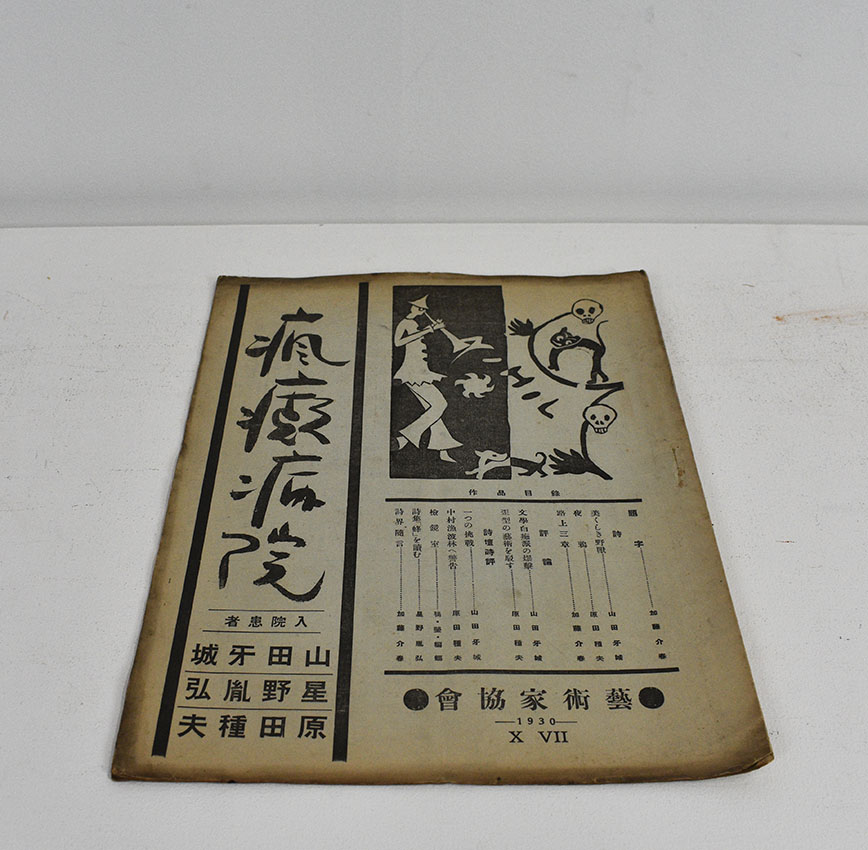 瘋癲病院
入院患者
山田牙城
星野胤弘
原田種夫
作品目錄
題字……加藤介春
詩
美くしき野獸……山田牙城
夜鴉……原田種夫
路上三章……加藤介春
評論
文學白痴派の爆擊……山田牙城
歪型の藝術を駁す……原田種夫
詩壇時評
一つの挑戰……山田牙城
中村漁波林へ警告……原田種夫
檢鏡室
詩集「蜂」を讀む……星野胤弘
詩界隨言……加藤介春
●藝術家協會●
—1930—
X VII